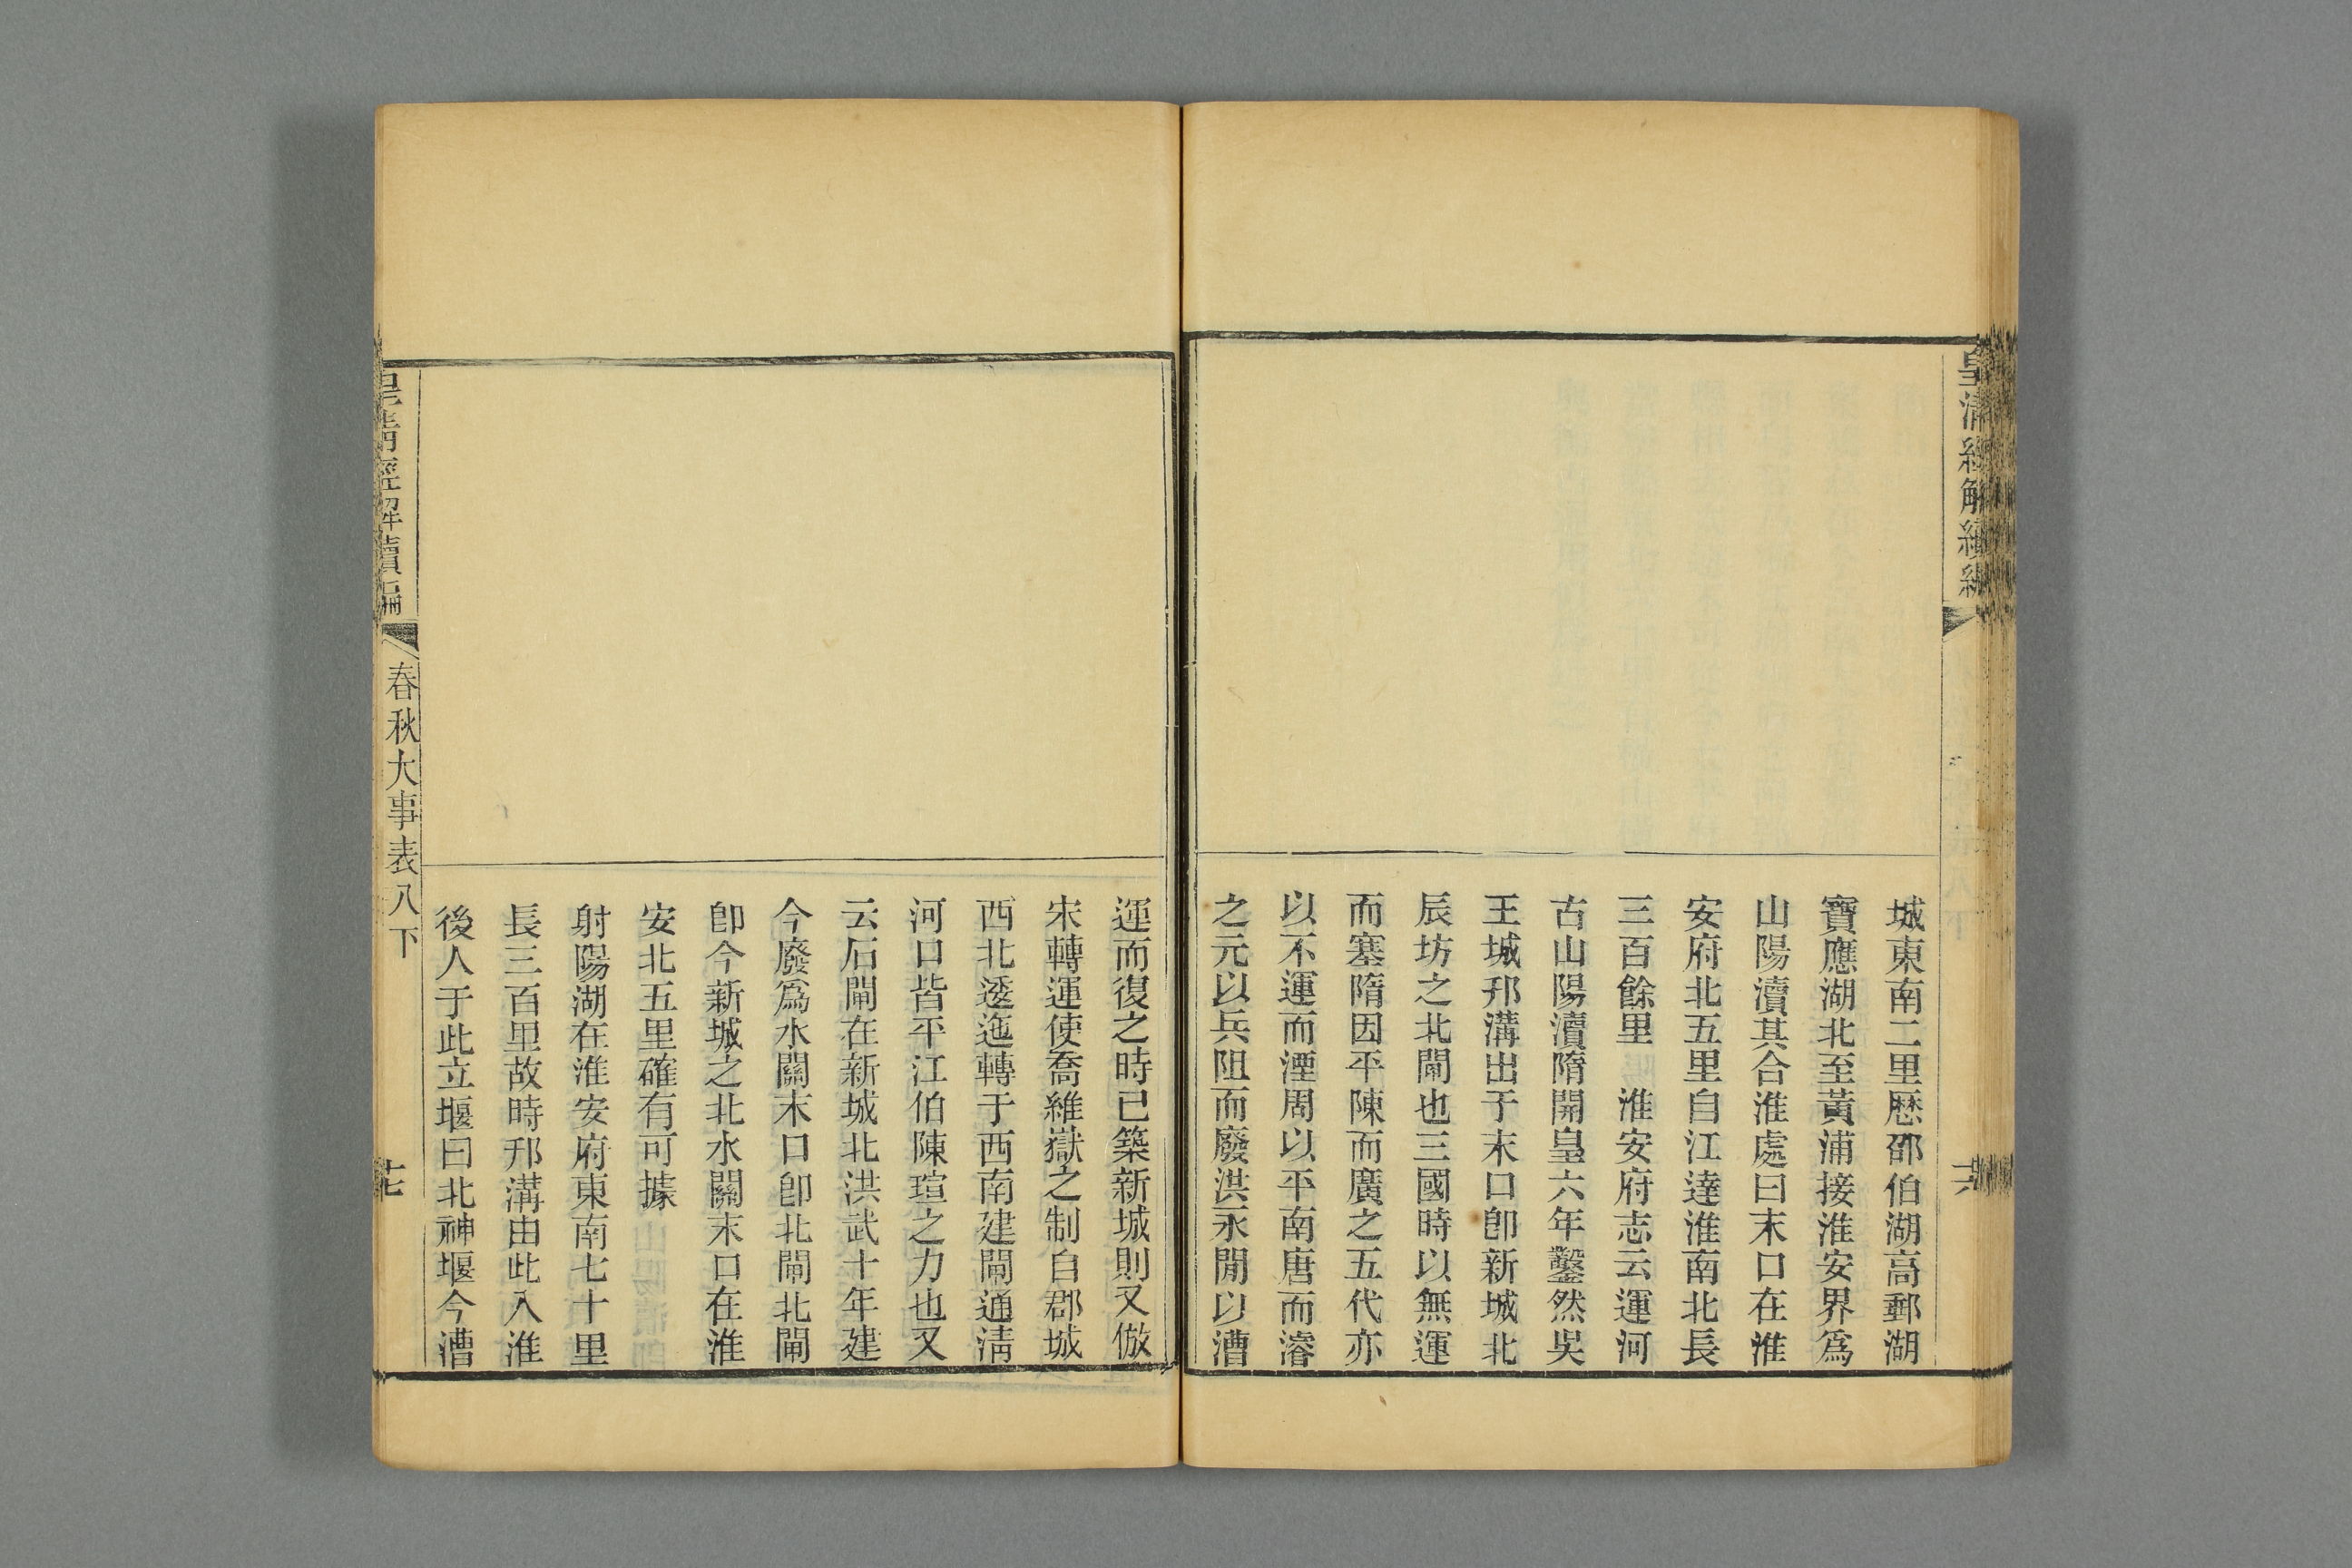 皇清經解續編
城東南二里歷邵伯湖高郵湖
寶應湖北至黃浦接淮安界爲
山陽瀆其合淮處曰末口在淮
安府北五里自江達淮南北長
三百餘里　淮安府志云運河
古山陽瀆隋開皇六年鑿然吳
王城邗溝出于末口卽新城北
辰坊之北閘也三國時以無運
而塞隋因平陳而廣之五代亦
以不運而湮周以平南唐而濬
之元以兵阻而廢洪永閒以漕
運而復之時已築新城則又倣
宋轉運使喬維嶽之制自郡城
西北逶迤轉于西南建閘通淸
河口皆平江伯陳瑄之力也又
云石閘在新城北洪武十年建
今廢爲水關末口卽北閘北閘
卽今新城之北水關末口在淮
安北五里確有可據
射陽湖在淮安府東南七十里
長三百里故時邗溝由此入淮
後人于此立堰曰北神堰今漕
皇清經解續編
春秋大事表八下